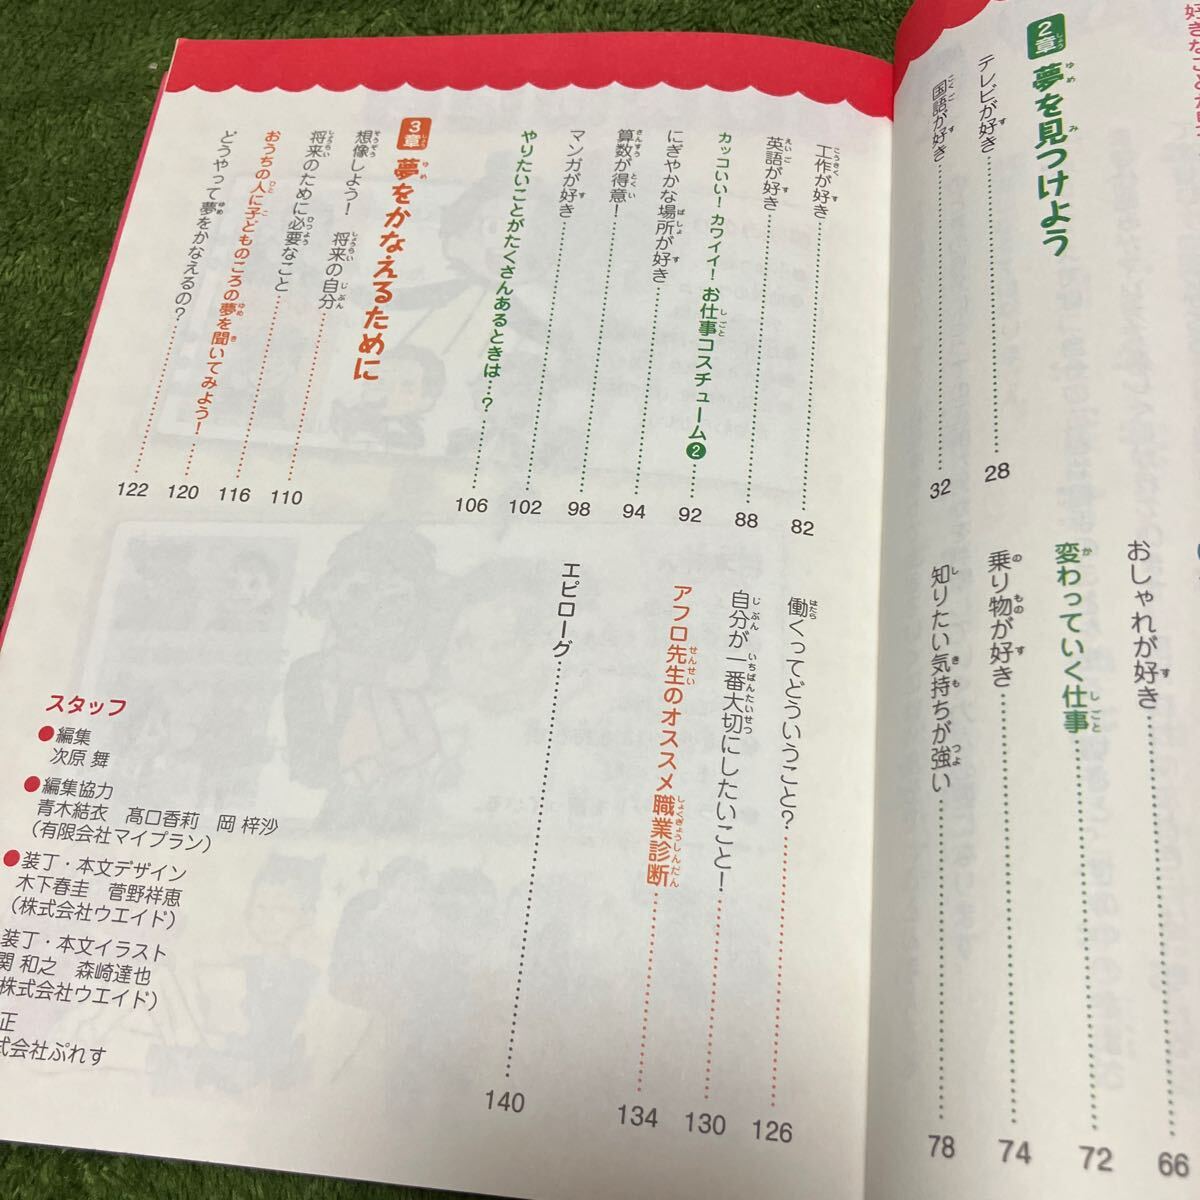 好きなこと
2章 夢を見つけよう
テレビが好き 28
国語が好き 32
おしゃれが好き 66
変わっていく仕事 72
乗り物が好き 74
知りたい気持ちが強い 78
工作が好き 82
英語が好き 88
カッコいい！カワイイ！お仕事コスチューム❷ 92
にぎやかな場所が好き 94
算数が得意！ 98
マンガが好き 102
やりたいことがたくさんあるときは…？ 106
3章 夢をかなえるために
想像しよう！ 将来の自分 110
将来のために必要なこと 116
おうちの人に子どものころの夢を聞いてみよう！ 120
どうやって夢をかなえるの？ 122
働くってどういうこと？ 126
自分が一番大切にしたいこと！ 130
アフロ先生のオススメ職業診断 134
エピローグ 140
スタッフ
●編集
次原 舞
●編集協力
青木結衣 髙口香莉 岡 梓沙
（有限会社マイプラン）
●装丁・本文デザイン
木下春圭 菅野祥恵
（株式会社ウエイド）
装丁・本文イラスト
関 和之 森崎達也
株式会社ウエイド）
正
式会社ぷれす